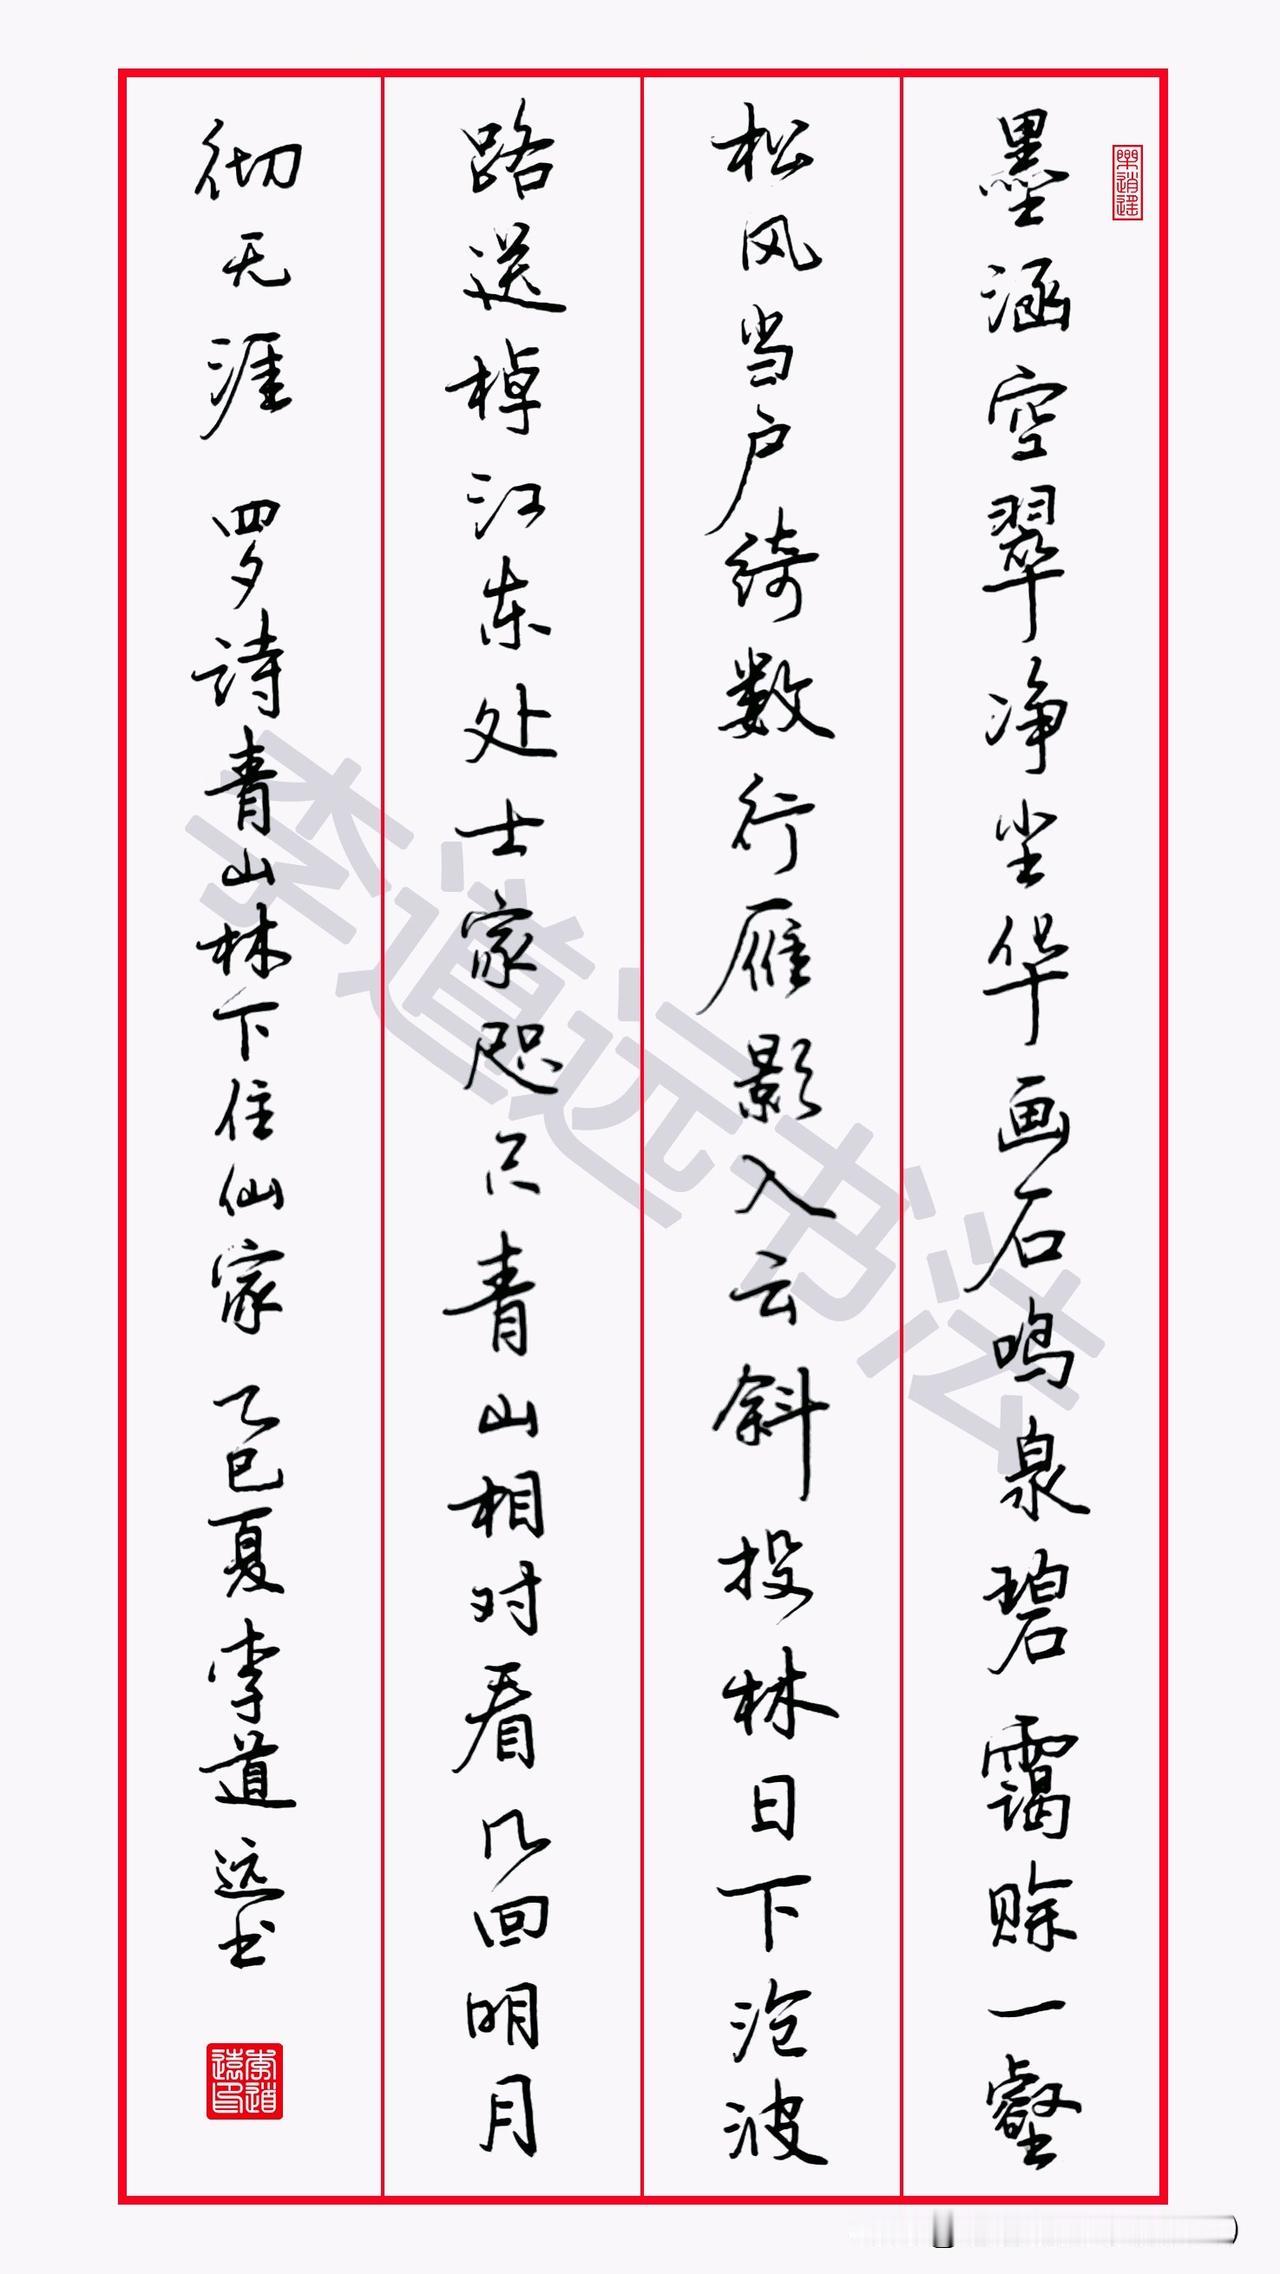 墨涵空翠净尘华画石鸣泉碧霭赊一壑
松风当户绮数行雁影入云斜投林日下沧波
路送棹江东处士家咫尺青山相对看几回明月
彻无涯 罗诗青山林下住仙家 乙巳夏李道远书
李道远印
李道远书法